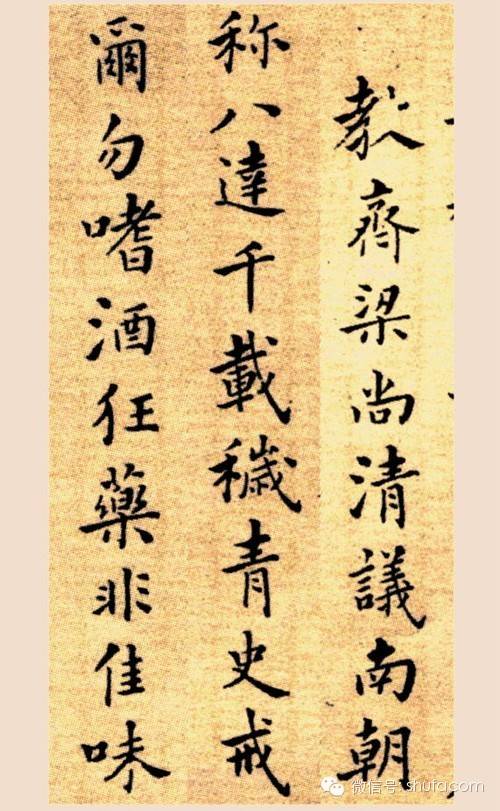 教齊梁尚清議南朝
称八達千載穢青史戒
爾勿嗜酒狂藥非佳味
微信号: shufacom